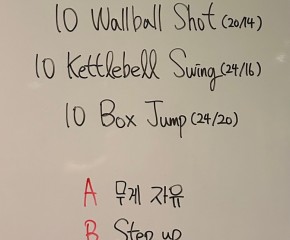 10 Wallball Shot (20/14)
10 Kettlebell Swing (24/16)
10 Box Jump (24/20)
A 무게 자유
B Step up